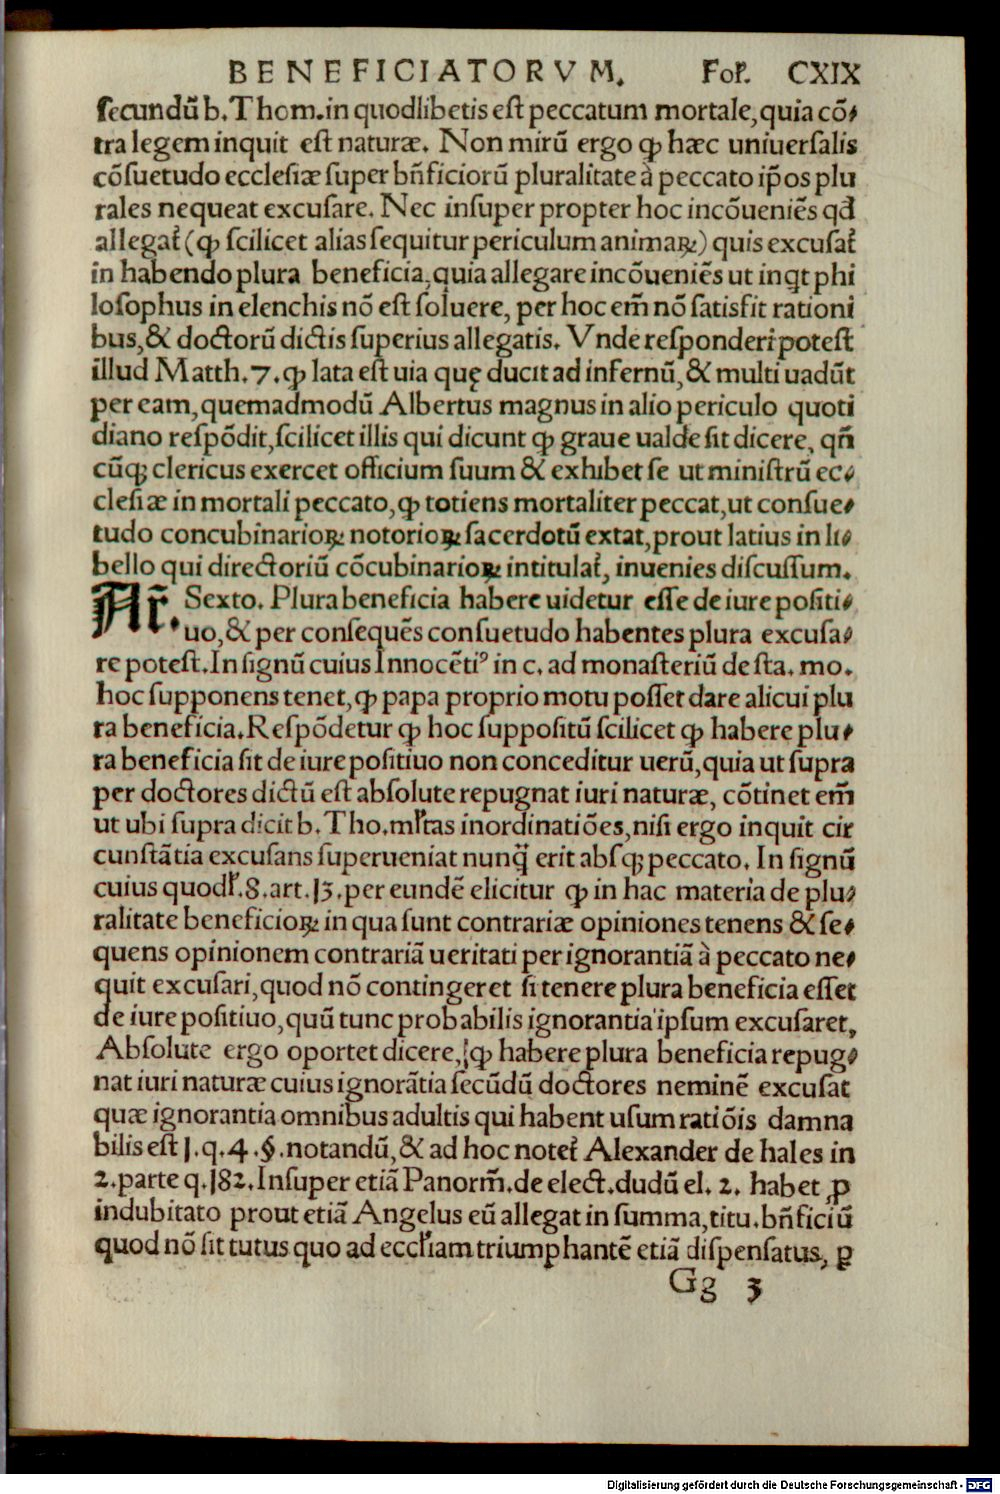 BENEFICIATORVM. Fol. CXIX
ſecundũ b. Thom. in quodlibetis eſt peccatum mortale, quia cõ-
tra legem inquit eſt naturæ. Non mirũ ergo ꝙ hæc uniuerſalis
cõſuetudo ecclesiæ ſuper bñficiorũ pluralitate à peccato ip̃os plu
rales nequeat excuſare. Nec inſuper propter hoc incõueniẽs qđ
allegat᷑ (ꝙ ſcilicet alias ſequitur periculum animaꝝ) quis excuſat᷑
in habendo plura beneficia, quia allegare incõueniẽs ut inq̇t phi
loſophus in elenchis nõ eſt ſoluere, per hoc em̃ nõ ſatisfit rationi
bus, & doctorũ dictis ſuperius allegatis. Vnde reſponderi poteſt
illud Matth. 7. ꝙ lata eſt uia quę ducit ad infernũ, & multi uadũt
per eam, quemadmodũ Albertus magnus in alio periculo quoti
diano reſpõdit, ſcilicet illis qui dicunt ꝙ graue ualde ſit dicere, qñ
cũqꝫ clericus exercet officium ſuum & exhibet ſe ut miniſtrũ ec-
cleſiæ in mortali peccato, ꝙ totiens mortaliter peccat, ut conſue-
tudo concubinarioꝝ notorioꝝ ſacerdotũ extat, prout latius in li-
bello qui directoriũ cõcubinarioꝝ intitulat᷑, inuenies diſcuſſum.
Ar̃. Sexto. Plura beneficia habere uidetur eſſe de iure poſiti-
uo, & per conſequẽs conſuetudo habentes plura excuſa-
re poteſt. In ſignũ cuius Innocẽtiꝰ in c. ad monaſteriũ de ſta. mo.
hoc ſupponens tenet, ꝙ papa proprio motu poſſet dare alicui plu
ra beneficia. Reſpõdetur ꝙ hoc ſuppoſitũ ſcilicet ꝙ habere plu-
ra beneficia ſit de iure poſitiuo non conceditur uerũ, quia ut ſupra
per doctores dictũ eſt abſolute repugnat iuri naturæ, cõtinet em̃
ut ubi ſupra dicit b. Tho. ml̃tas inordinatiões, niſi ergo inquit cir
cunſtãtia excuſans ſuperueniat nunq̃ erit abſqꝫ peccato. In ſignũ
cuius quodl̃. 8. art. 13. per eundẽ elicitur ꝙ in hac materia de plu-
ralitate beneficioꝝ in qua ſunt contrariæ opiniones tenens & ſe-
quens opinionem contrariã ueritati per ignorantiã à peccato ne-
quit excuſari, quod nõ contingeret ſi tenere plura beneficia eſſet
de iure poſitiuo, quũ tunc probabilis ignorantia ipſum excuſaret,
Abſolute ergo oportet dicere, ꝙ habere plura beneficia repug-
nat iuri naturæ cuius ignorãtia ſecũdũ doctores neminẽ excuſat
quæ ignorantia omnibus adultis qui habent uſum ratiõis damna
bilis eſt 1. q. 4. §. notandũ, & ad hoc notet᷑ Alexander de hales in
2. parte q. 182. Inſuper etiã Panorm̃. de elect. dudũ el. 2. habet ꝓ
indubitato prout etiã Angelus eũ allegat in ſumma, titu. bñficiũ
quod nõ ſit tutus quo ad eccl̃iam triumphantẽ etiã diſpenſatus, ꝑ
Gg 3
Digitalisierung gefördert durch die Deutsche Forschungsgemeinschaft - DFG